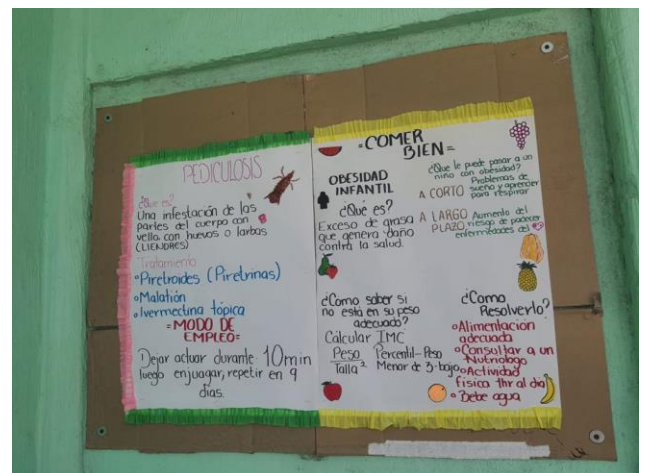 PEDICULOSIS
¿Que es?
Una infestación de las
partes del cuerpo con
vello con huevos o larbas
(LIENDRES)
Tratamiento
Piretroides (Piretrinas)
Malatión
Ivermectina tópica
=MODO DE
EMPLEO=
Dejar actuar durante 10min
luego enjuagar, repetir en 9
días.
=COMER
BIEN=
OBESIDAD
INFANTIL
¿Qué es?
Exceso de grasa
que genera daño
contra la salud.
¿Que le puede pasar a un
niño con obesidad?
A CORTO Problemas de
sueño y aprender
para respirar
A LARGO
PLAZO Aumento del
riesgo de padecer
enfermedades del
¿Como saber si
no está en su peso
adecuado?
Cálcular IMC
Peso
Talla².
Percentil-Peso
Menor de 3-bajo
¿Como
Resolverlo?
Alimentación
adecuada
Consultar a un
Nutriologo
Actividad
física 1hr al día
Bebe agua